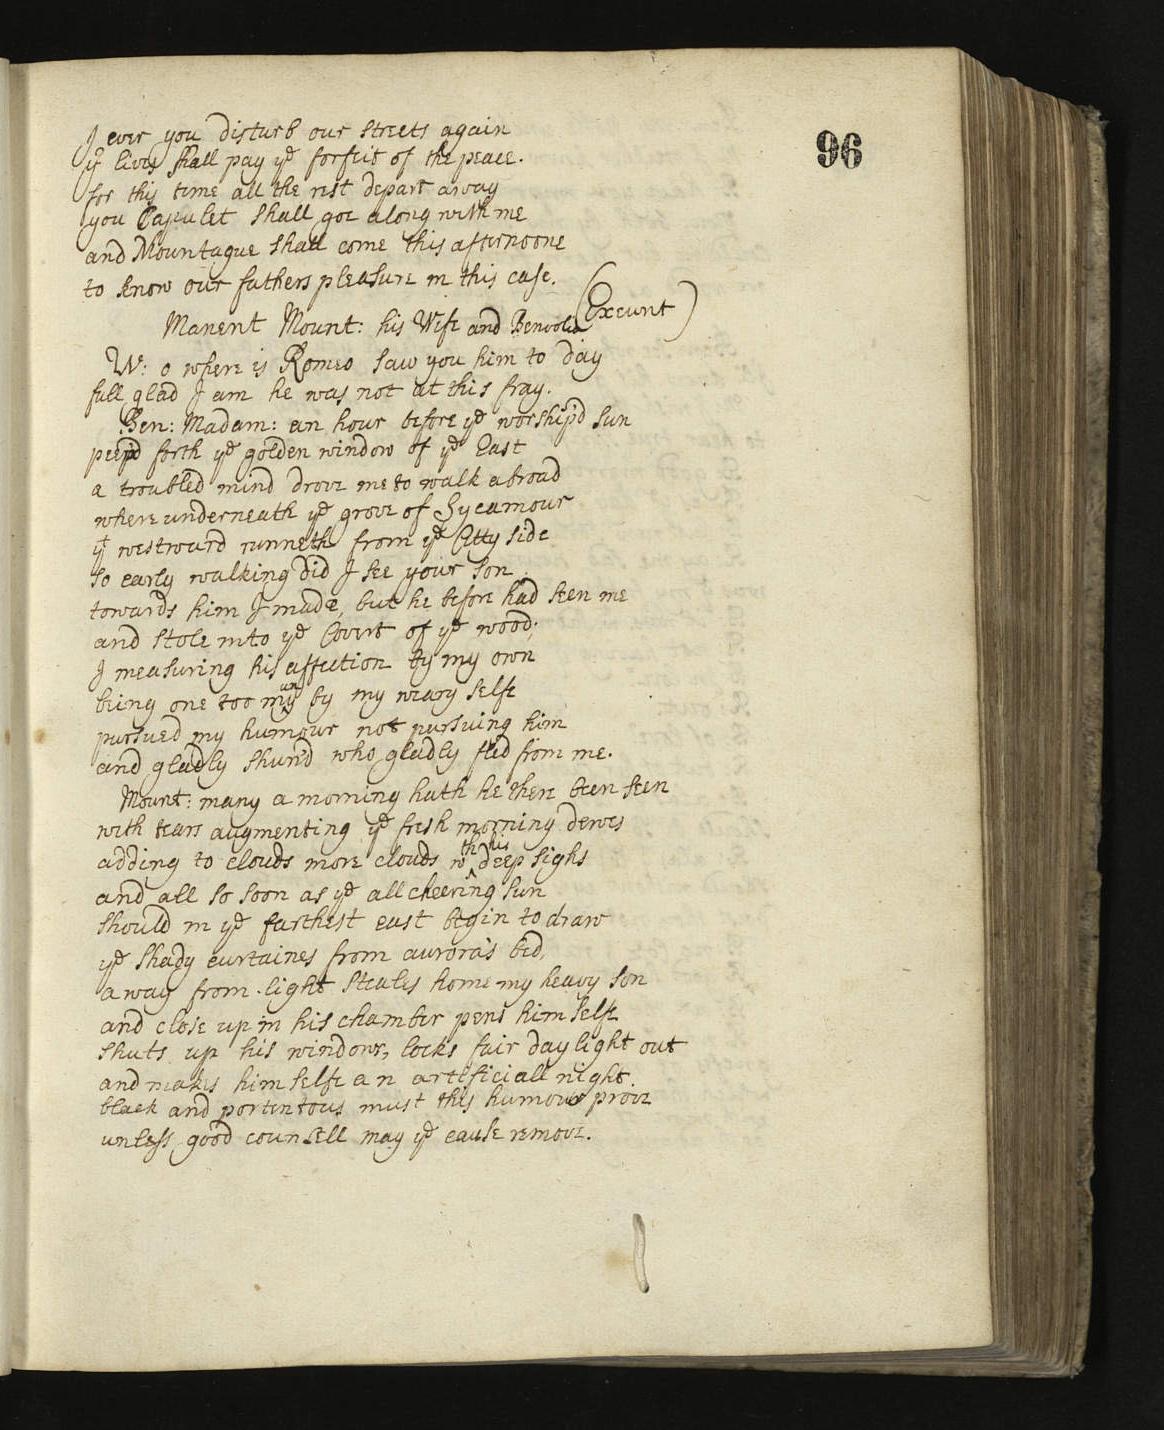 96
If ever you disturb our streets again
yr lives shall pay ye forfeit of the peace.
for this time all the rest depart away
you Capulet shall goe along with me
and Mountague shall come this afternoone
to know our fathers pleasure in this case.
(Exeunt)
Manent Mount: his Wife and Benvolio
W: o where is Romeo saw you him to day
full glad I am he was not at this fray.
Ben: Madam: an hour before ye worship'd sun
peep'd forth ye golden window of ye East
a troubled mind drove me to walk abroad
where underneath ye grove of Sycamour
yt westward runneth from ye Citty side
so early walking did I see your son
towards him I made, but he before had seen me
and stole into ye Covert of ye wood;
I measuring his affection by my own
being one too many by my weary selfe
pursued my humour not pursuing him
and gladly shun'd who gladly fled from me.
Mount: many a morning hath he there been seen
with tears augmenting ye fresh morning dewes
adding to clouds more clouds wth his deep sighs
and all so soon as ye all cheering sun
should in ye farthest east begin to draw
ye shady curtaines from aurora's bed,
away from light steales home my heavy son
and close up in his chamber pens himselfe
shuts up his windows, locks fair daylight out
and makes himselfe an artificiall night.
black and portentous must this humour prove
unless good counsell may ye cause remove.